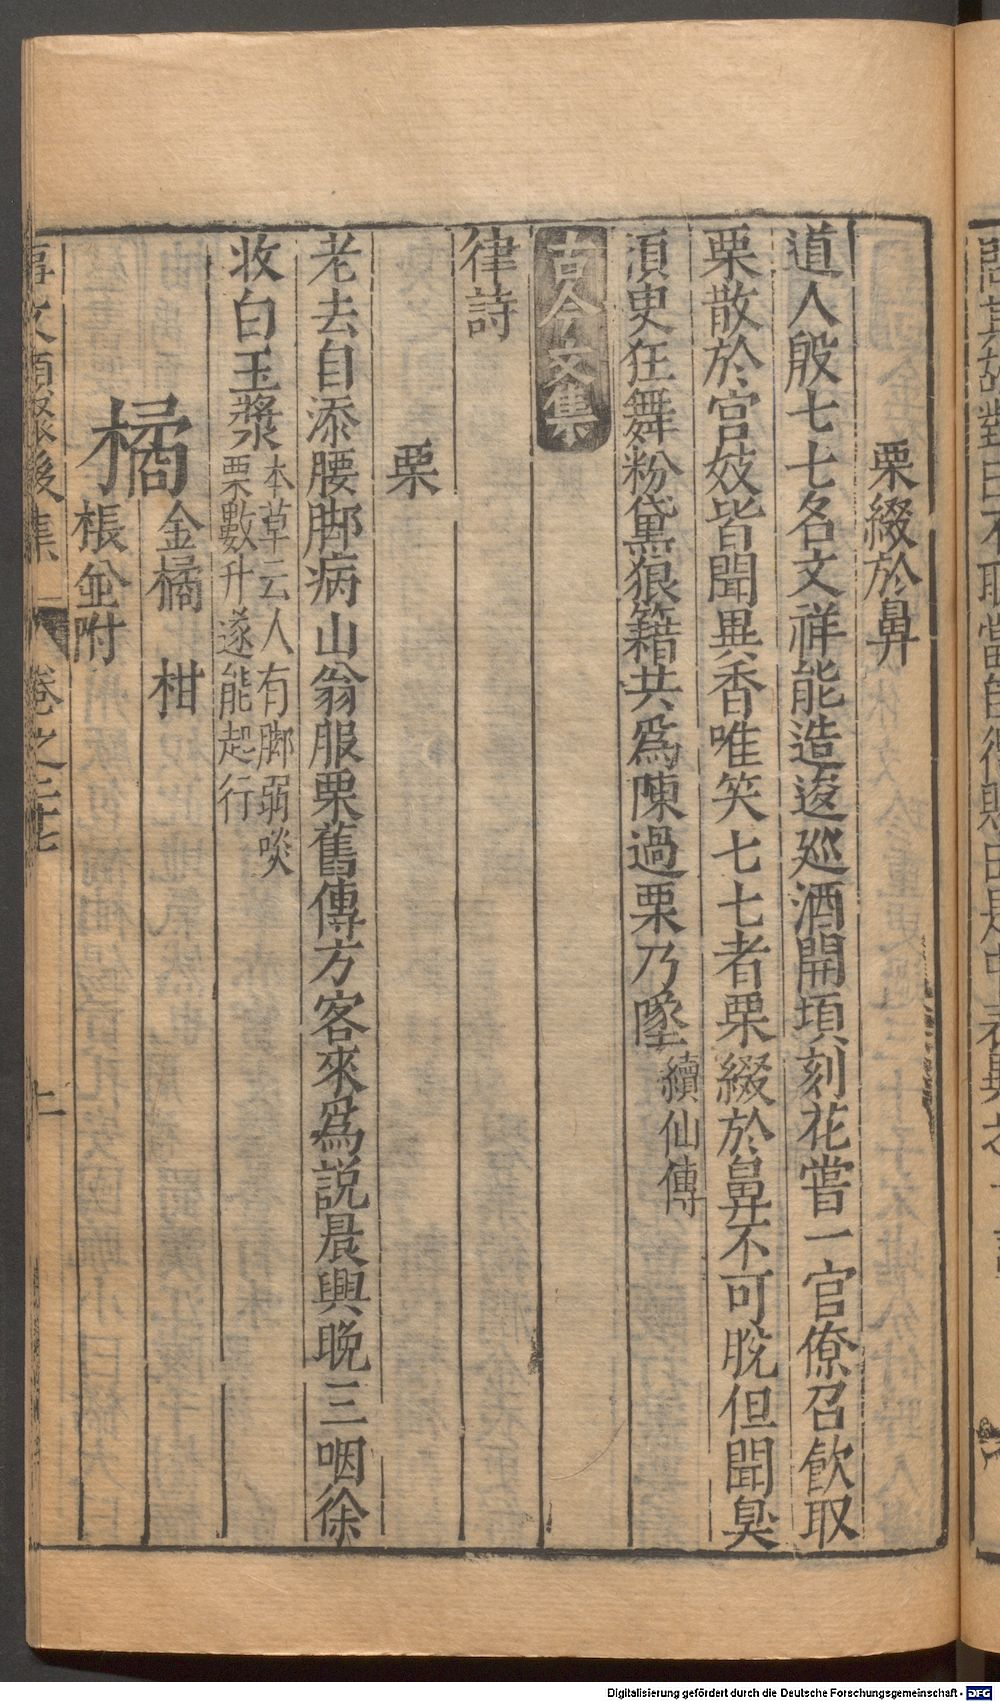 栗綴於鼻
道人殷七七名文祥能造逡巡酒開頃刻花嘗一官僚召飲取
栗散於宮妓皆聞異香唯笑七七者栗綴於鼻不可脫但聞臭
須臾狂舞粉黛狼籍共為陳過栗乃墜續仙傳
古今文集
律詩
栗
老去自添腰脚病山翁服栗舊傳方客來為說晨興晚三咽徐
收白玉漿本草云人有脚弱啖
栗數升遂能起行
橘 金橘 柑
棖並附
事文類聚後集 卷之二十七
Digitalisierung gefördert durch die Deutsche Forschungsgemeinschaft - DFG